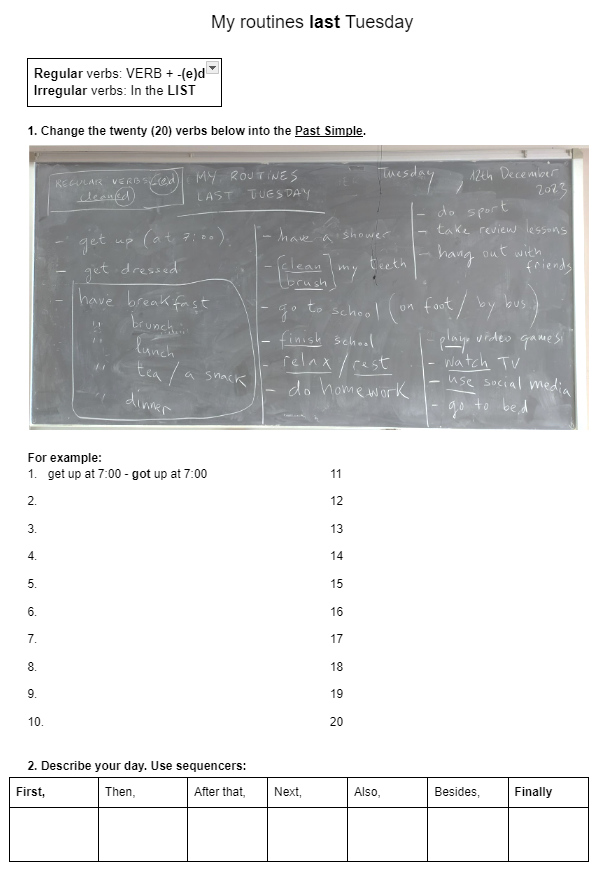 My routines last Tuesday
Regular verbs: VERB + -(e)d
Irregular verbs: In the LIST
1. Change the twenty (20) verbs below into the Past Simple.
REGULAR VERBS (ed)
cleaned
MY ROUTINES
LAST TUESDAY
Tuesday, 12th December
2023
- get up (at 7:00)
- get dressed
- have breakfast
" brunch
" lunch
" tea / a snack
" dinner
- have a shower
- [clean
brush] my teeth
- go to school (on foot / by bus)
- finish school
- relax / rest
- do homework
- do sport
- take review lessons
- hang out with
friends
- play video games
- watch TV
- use social media
- go to bed
For example:
1. get up at 7:00 - got up at 7:00
2.
3.
4.
5.
6.
7.
8.
9.
10.
11
12
13
14
15
16
17
18
19
20
2. Describe your day. Use sequencers:
First, Then, After that, Next, Also, Besides, Finally